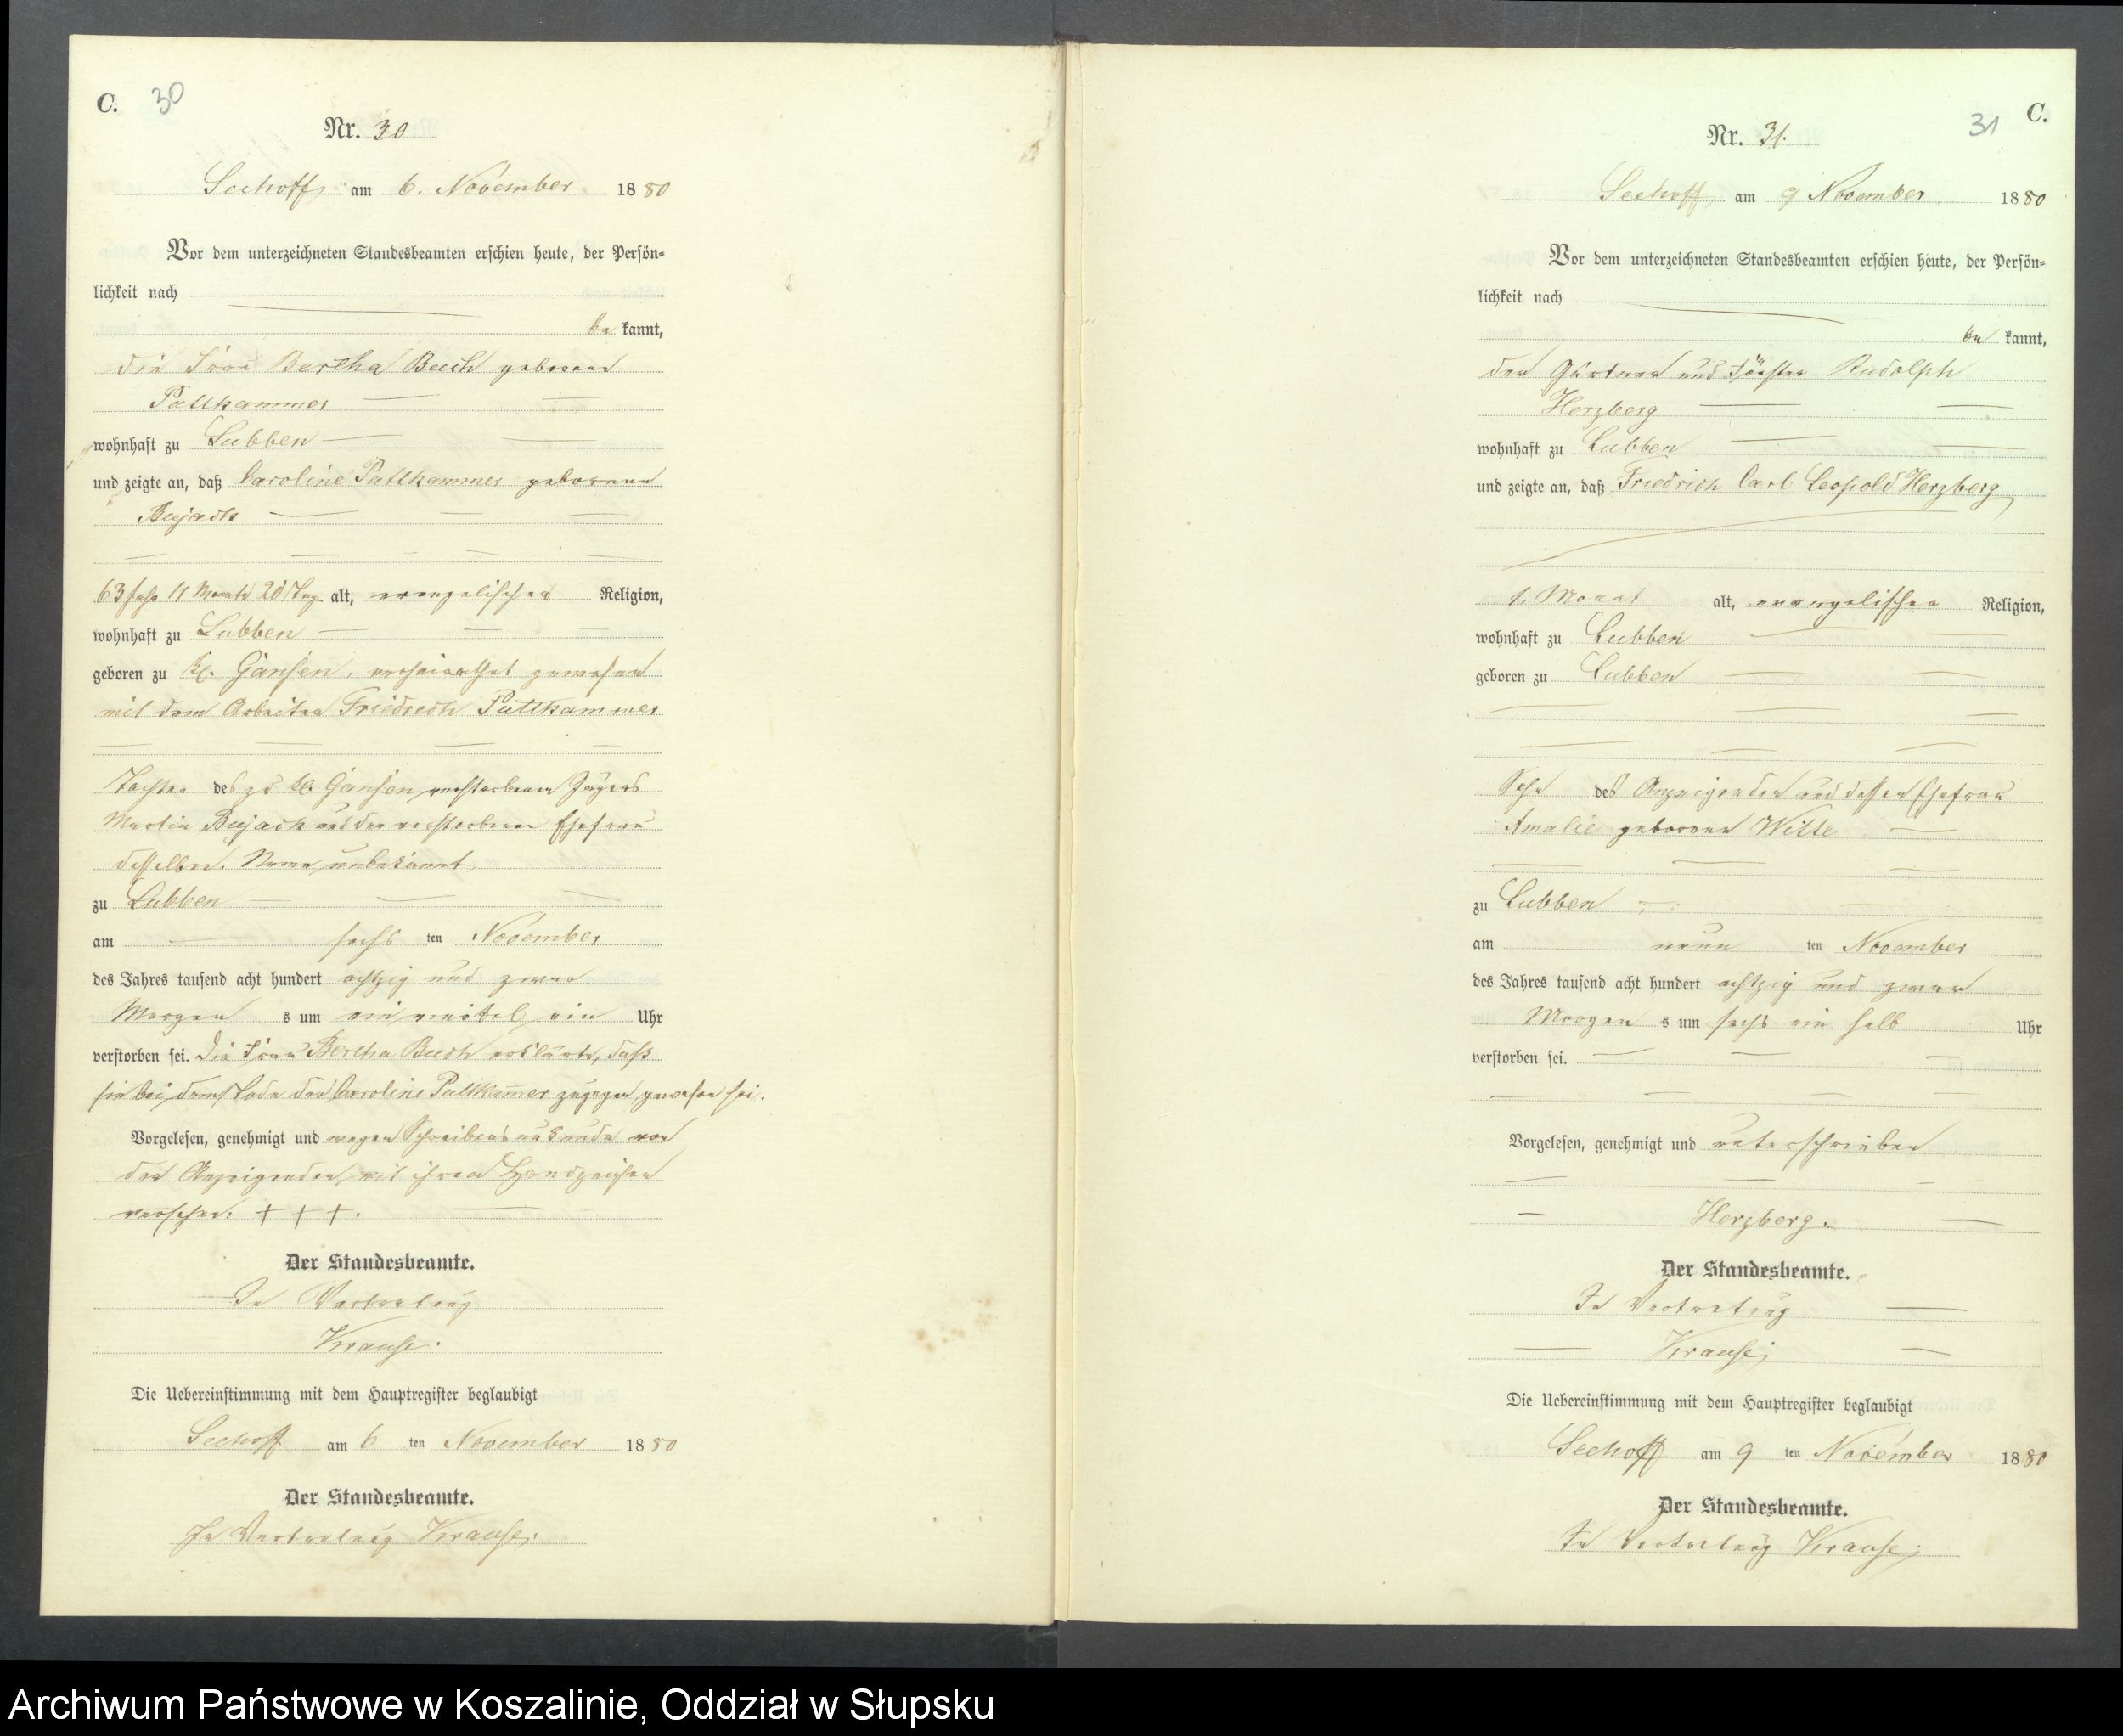 C. 30
Nr. 30
Seehoff am 6. November 1880
Vor dem unterzeichneten Standesbeamten erschien heute, der Persön-
lichkeit nach
be kannt,
die Frau Bertha Buch geborene
Puttkammer
wohnhaft zu Lubben
und zeigte an, daß Caroline Puttkammer geborene
Bujack
63 Jahr 11 Monate 20 Tag alt, evangelischer Religion,
wohnhaft zu Lubben
geboren zu Kl. Gansen, verheirathet gewesen
mit dem Arbeiter Friedrich Puttkammer
Tochter des zu Kl. Gansen verstorbenen Jägers
Martin Bujack und der verstorbenen Ehefrau
desselben. Name unbekannt
zu Lubben
am sechs ten November
des Jahres tausend acht hundert achtzig und zwar
Morgen s um ein viertel ein Uhr
verstorben sei. Die Frau Bertha Buch erklärte, daß
sie bei dem Tode der Caroline Puttkam̄er zugegen gewesen sei.
Vorgelesen, genehmigt und wegen Schreibensunkunde von
der Anzeigenden mit ihrem Handzeichen
versehen: + + +.
Der Standesbeamte.
In Vertretung
Krause.
Die Uebereinstimmung mit dem Hauptregister beglaubigt
Seehoff am 6 ten November 1880
Der Standesbeamte.
In Vertretung Krause.
31 C.
Nr. 31.
Seehoff am 9 November 1880
Vor dem unterzeichneten Standesbeamten erschien heute, der Persön-
lichkeit nach
be kannt,
der Gärtner und Förster Rudolph
Herzberg
wohnhaft zu Lubben
und zeigte an, daß Friedrich Carl Leopold Herzberg
1. Monat alt, evangelischer Religion,
wohnhaft zu Lubben
geboren zu Lubben
Sohn des Anzeigenden und dessen Ehefrau
Amalie geborene Witte
zu Lubben
am neun ten November
des Jahres tausend acht hundert achtzig und zwar
Morgen s um sechs ein halb Uhr
verstorben sei.
Vorgelesen, genehmigt und unterschrieben
Herzberg.
Der Standesbeamte.
In Vertretung
Krause
Die Uebereinstimmung mit dem Hauptregister beglaubigt
Seehoff am 9 ten November 1880
Der Standesbeamte.
In Vertretung Krause
Archiwum Państwowe w Koszalinie, Oddział w Słupsku